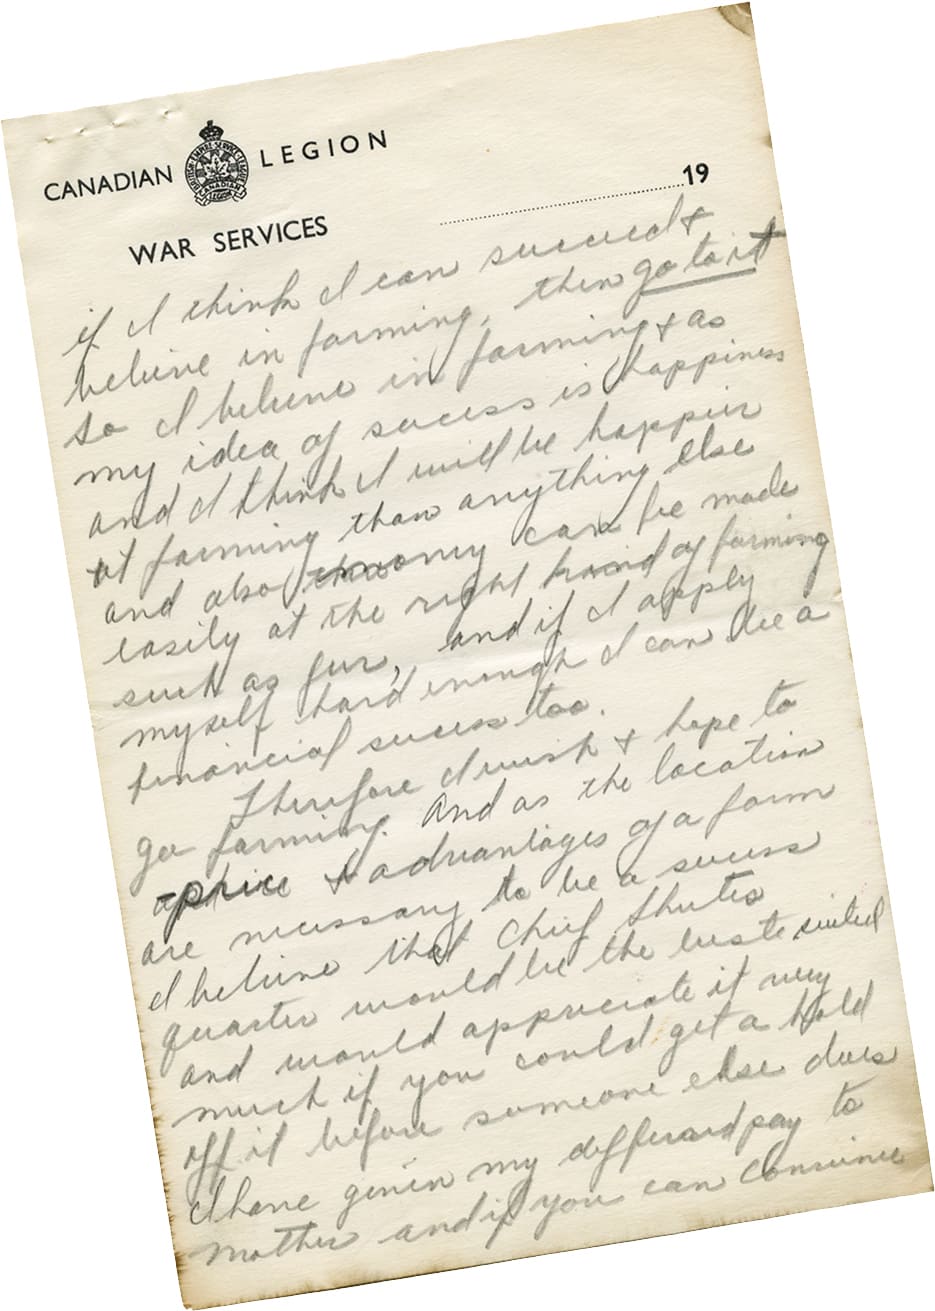 CANADIAN LEGION
BRITISH EMPIRE SERVICE LEAGUE
CANADIAN LEGION
WAR SERVICES
19
if I think I can succeed &
believe in farming, then go to it
So I believe in farming & as
my idea of sucess is happiness
and I think I will be happier
at farming than anything else
and also mony can be made
easily at the right kind of farming
such as fur, and if I apply
myself hard enough I can be a
financial sucess too.
Therefore I wish & hope to
go farming. And as the location
price & advantages of a farm
are necessary to be a sucess
I believe that Chief Shutes
quarter would be the beste suited
and would appreciate it very
much if you could get a hold
off it before someone else does
I have given my differed pay to
mother and if you can convince